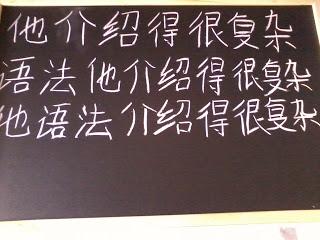 他介绍得很复杂
语法他介绍得很复杂
他语法介绍得很复杂